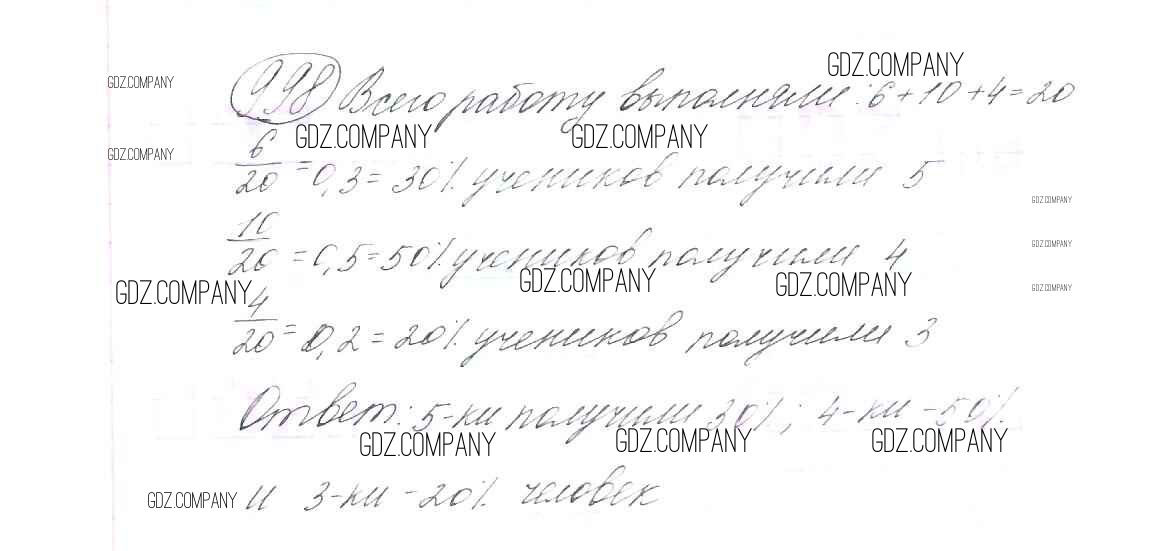 GDZ.COMPANY
GDZ.COMPANY
998 Всего работу выполняли: 6 + 10 + 4 = 20
GDZ.COMPANY GDZ.COMPANY
GDZ.COMPANY
6/20 = 0,3 = 30% учеников получили 5
GDZ.COMPANY
10/20 = 0,5 = 50% учеников получили 4
GDZ.COMPANY
GDZ.COMPANY GDZ.COMPANY GDZ.COMPANY
GDZ.COMPANY
4/20 = 0,2 = 20% учеников получили 3
Ответ: 5-ки получили 30%; 4-ки - 50%
GDZ.COMPANY GDZ.COMPANY GDZ.COMPANY
GDZ.COMPANY
и 3-ки - 20% человек